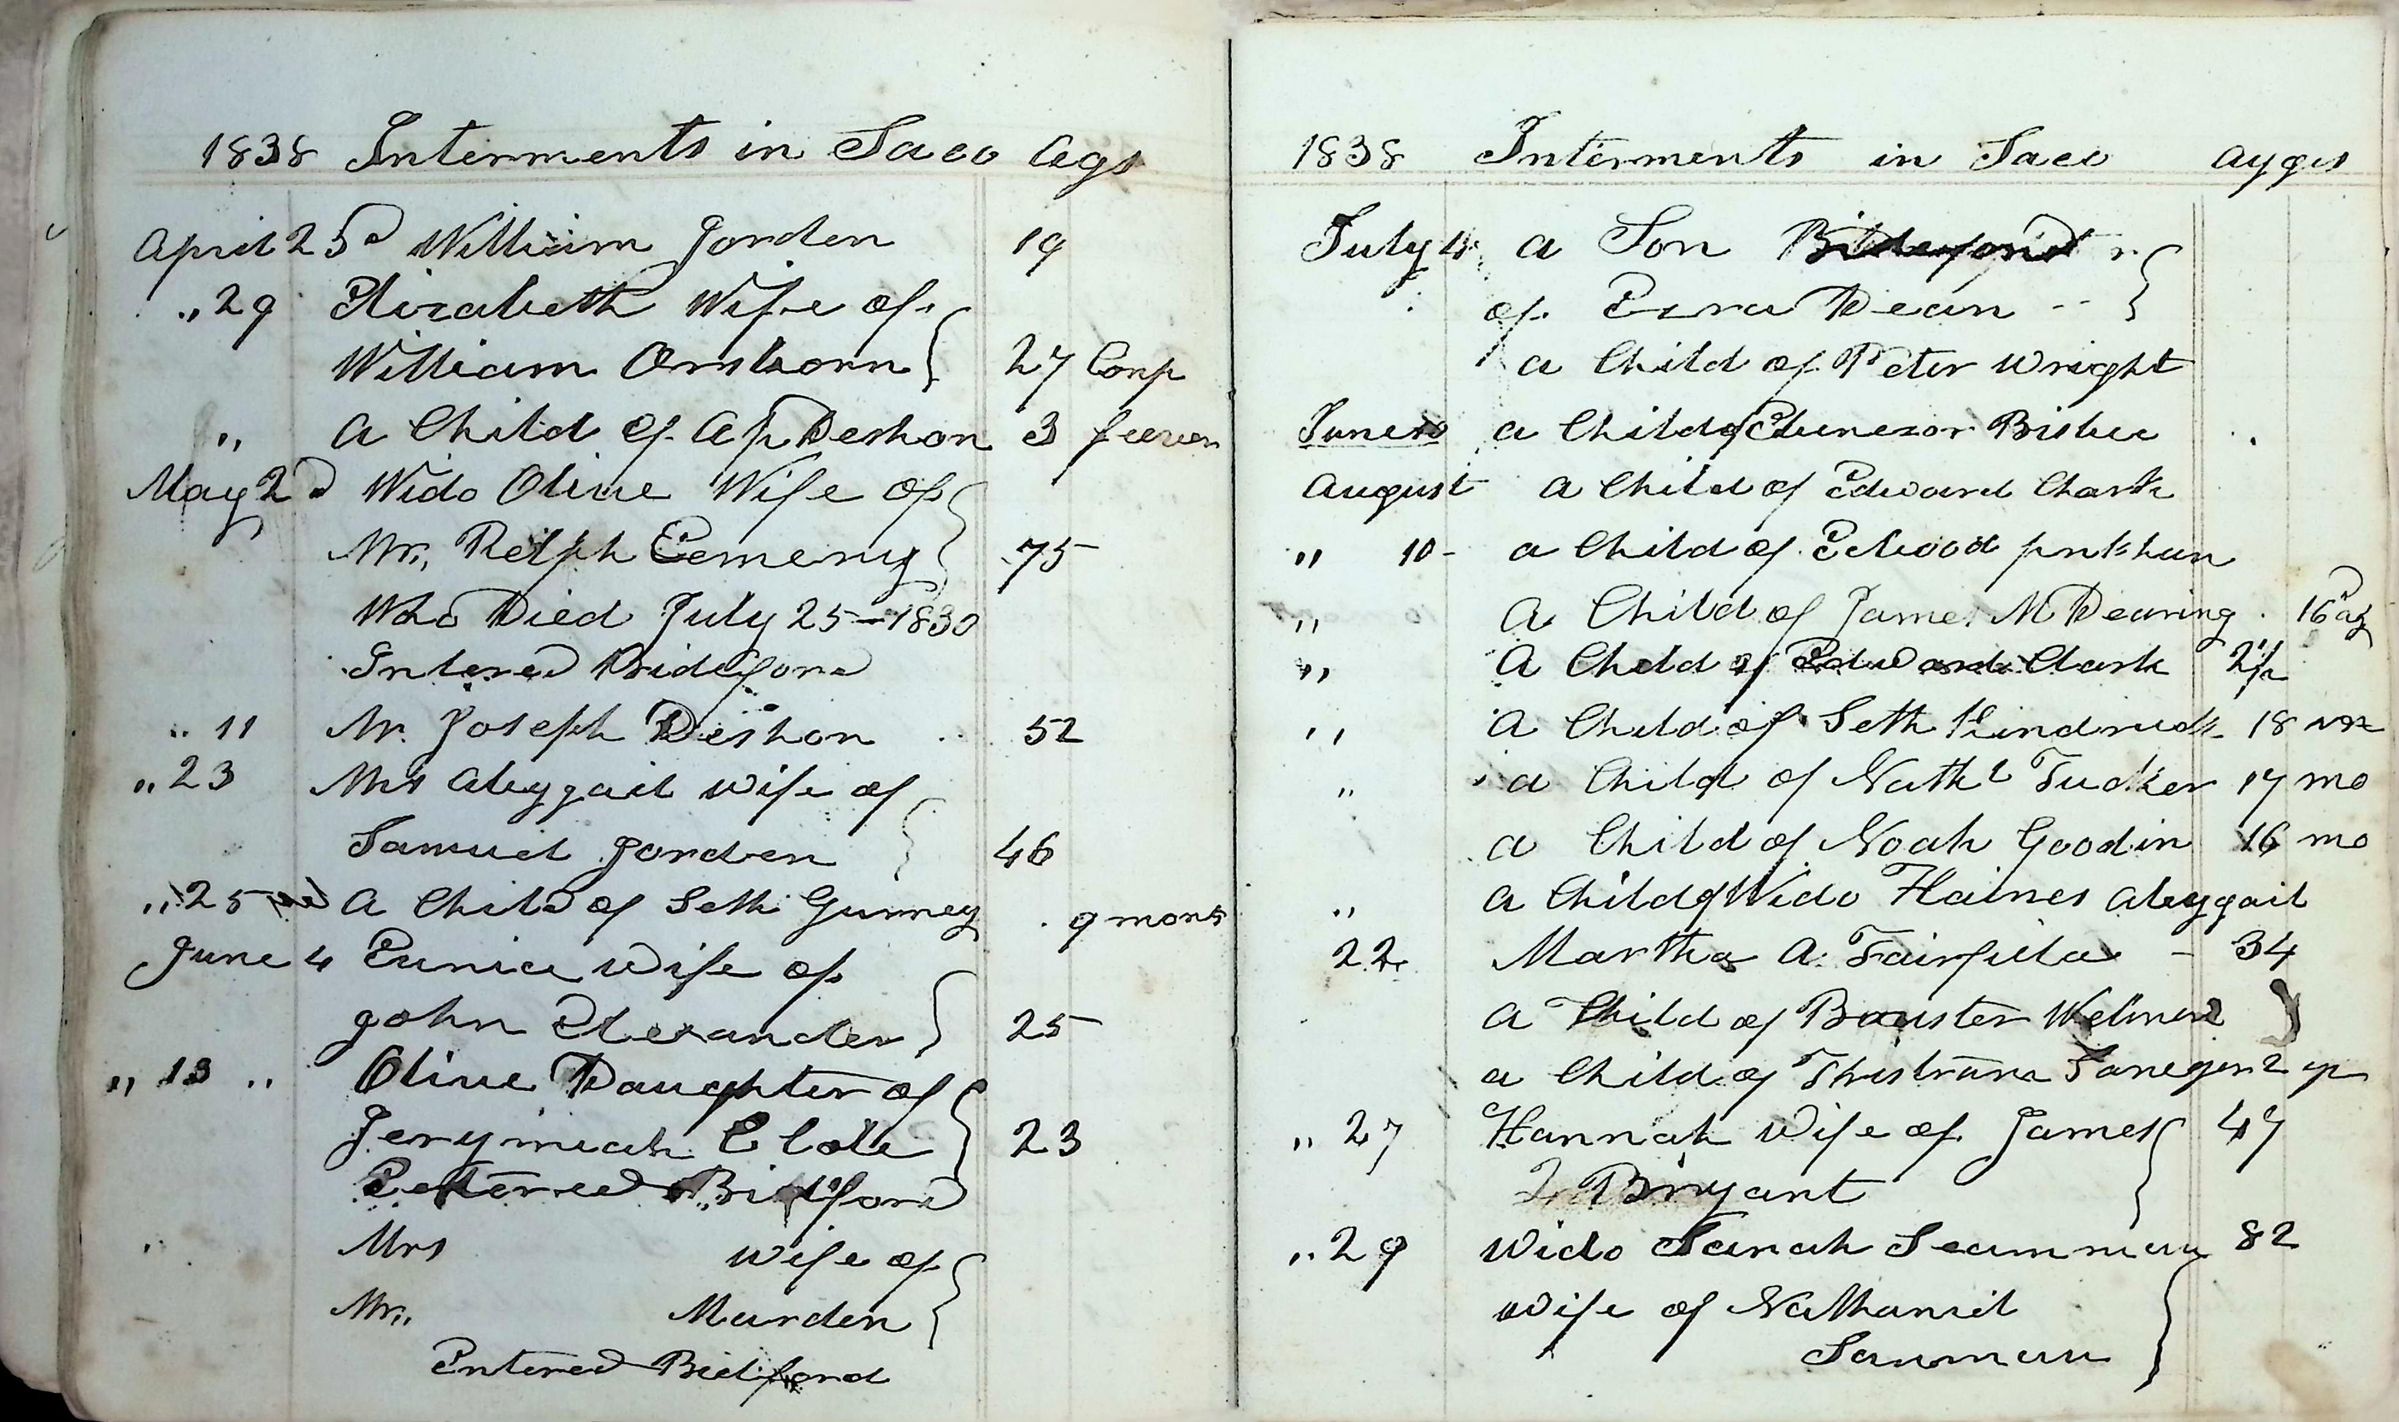 1838 Interments in Saco Ags
April 25d William Jorden 19
"29 Elizabeth Wife of
William Orsborn 27 Conp
" A Child of A P Deshon 3 feever
May 2d Wido Olive Wife of
Mr. Relph Eemery 75
Who Died July 25-1830
Intered Bideford
" 11 Mr. Joseph Deshon 52
" 23 Mrs Abyggail Wife of
Samuel Jorden 46
" 25 A Child of Seth Gurney 9 monts
June 4 Eunice Wife of
John Elexander 25
" 13 " Olive Daughter of
Jerymiah Cole 23
Entered Bidford
Mrs wife of
Mr. Marden
Entered Bidiford
1838 Interments in Saco Agges
July 4 a Son
of Ezra Dean
a Child of Peter Wright
June a Child of Ebenezor Bisbee
August a Child of Edward Chark
" 10 - a Child of Elwood pnkhan
" A Child of James M Dearing 16
" A Child of Edward Clark 2½
" A Child of Seth Hindrick 18
" a Child of Nathl Tucker 17 mo
a Child of Noah Goodin 16 mo
" a Child of Wido Haines Abyggail
22 Martha A. Fairfield - 34
a Child of Welmore
a Child of 2
" 27 Hannah Wife of James 47
Bryant
" 29 Wido Sarah Seamman 82
Wife of Nathaniel
Samman